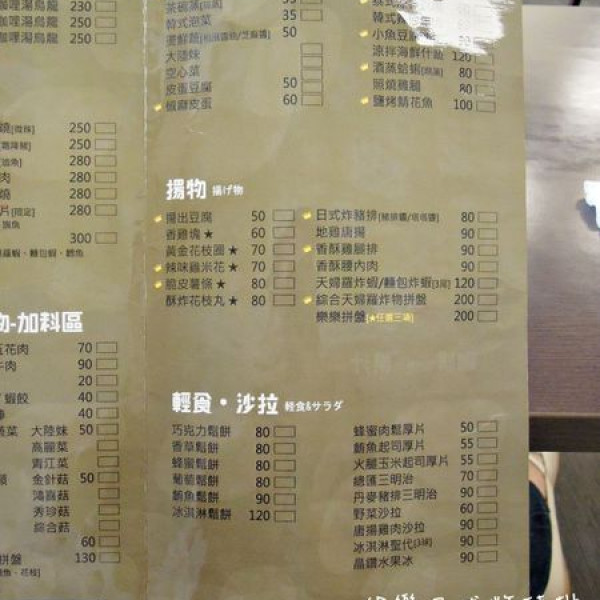 咖哩湯烏龍 230
咖哩湯烏龍 250
咖哩湯烏龍 250
250
250
280
肉 280
燒 280
280
300
物-加科區
五花肉 70
牛肉 90
20
蝦餃 40
40
大陸妹 50
高麗菜
青江菜
金針菇 50
鴻喜菇
秀珍菇
綜合菇
60
拼盤 130
茶碗蒸 35
韓式泡菜 35
燙鮮蔬[和風醬油/芝麻醬] 50
大陸妹
空心菜
皮蛋豆腐 50
椒麻皮蛋 60
韓式
小魚豆腐
涼拌海鮮什錦 120
酒蒸蛤蜊 80
照燒雞腿 80
鹽烤鯖花魚 100
揚物 揚げ物
揚出豆腐 50
香雞塊★ 60
黃金花枝圈★ 70
辣味雞米花★ 70
脆皮薯條★ 80
酥炸花枝丸★ 80
日式炸豬排 80
地雞唐揚 90
香酥雞腿排 90
香酥腰內肉 90
天婦羅炸蝦/麵包炸蝦[3尾] 120
綜合天婦羅炸物拼盤 200
樂樂拼盤[★任選三項] 200
輕食・沙拉 軽食&サラダ
巧克力鬆餅 80
香草鬆餅 80
蜂蜜鬆餅 80
葡萄鬆餅 80
鮪魚鬆餅 90
冰淇淋鬆餅 120
蜂蜜肉鬆厚片 50
鮪魚起司厚片 55
火腿玉米起司厚片 55
總匯三明治 70
丹麥豬排三明治 90
野菜沙拉 60
唐揚雞肉沙拉 90
冰淇淋聖代[3球] 90
晶鑽水果冰 90